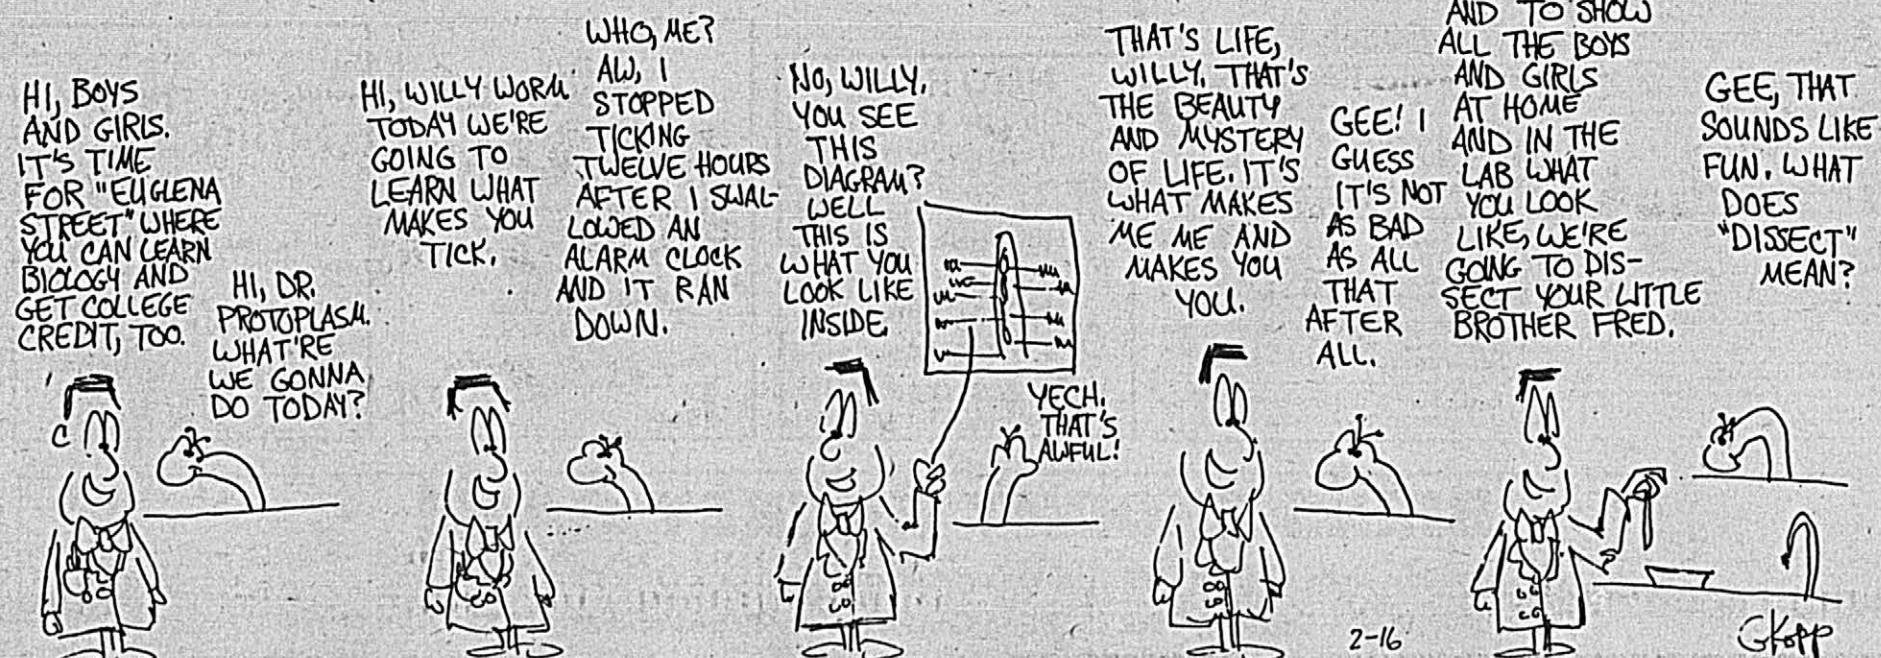 HI, BOYS
AND GIRLS.
IT'S TIME
FOR "EUGLENA
STREET" WHERE
YOU CAN LEARN
BIOLOGY AND
GET COLLEGE
CREDIT, TOO.
HI, DR.
PROTOPLASM.
WHAT'RE
WE GONNA
DO TODAY?
HI, WILLY WORM
TODAY WE'RE
GOING TO
LEARN WHAT
MAKES YOU
TICK.
WHO, ME?
AW, I
STOPPED
TICKING
TWELVE HOURS
AFTER I SWAL-
LOWED AN
ALARM CLOCK
AND IT RAN
DOWN.
NO, WILLY.
YOU SEE
THIS
DIAGRAM?
WELL
THIS IS
WHAT YOU
LOOK LIKE
INSIDE
YECH.
THAT'S
AWFUL!
THAT'S LIFE,
WILLY. THAT'S
THE BEAUTY
AND MYSTERY
OF LIFE. IT'S
WHAT MAKES
ME ME AND
MAKES YOU
YOU.
GEE! I
GUESS
IT'S NOT
AS BAD
AS ALL
THAT
AFTER
ALL.
AND TO SHOW
ALL THE BOYS
AND GIRLS
AT HOME
AND IN THE
LAB WHAT
YOU LOOK
LIKE, WE'RE
GOING TO DIS-
SECT YOUR LITTLE
BROTHER FRED.
GEE, THAT
SOUNDS LIKE
FUN. WHAT
DOES
"DISSECT"
MEAN?
2-16
GKOPP